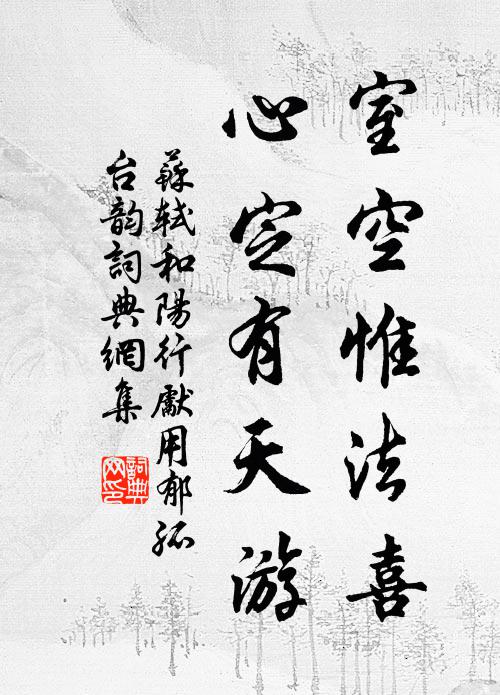 室空惟法喜
心定有天游
蘇軾和陽行獻用郁孤
台韵詞典網集
詞典
网印